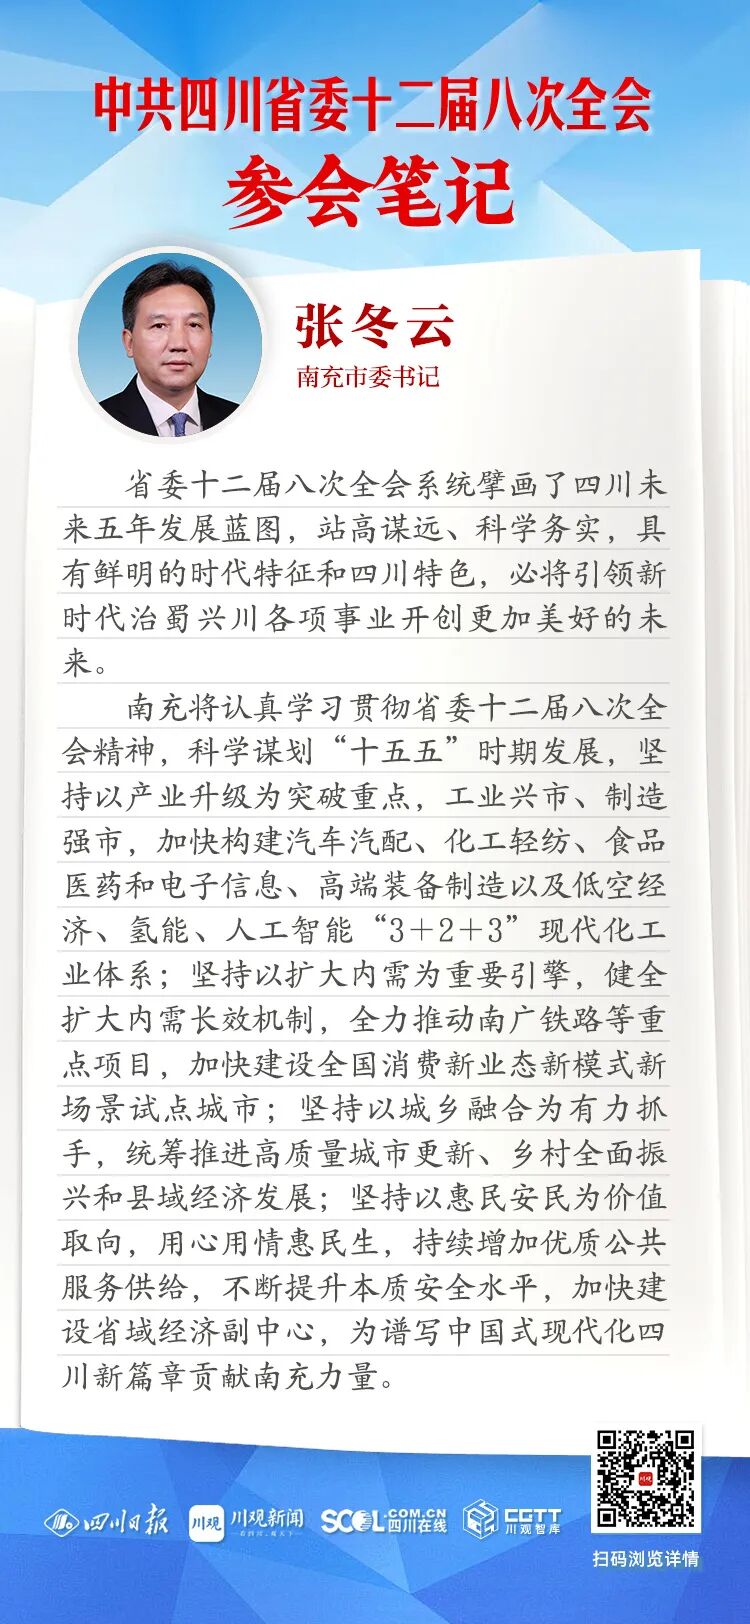 中共四川省委十二届八次全会
参会笔记
张冬云
南充市委书记
省委十二届八次全会系统擘画了四川未
来五年发展蓝图，站高谋远、科学务实，具
有鲜明的时代特征和四川特色，必将引领新
时代治蜀兴川各项事业开创更加美好的未
来。
南充将认真学习贯彻省委十二届八次全
会精神，科学谋划“十五五”时期发展，坚
持以产业升级为突破重点，工业兴市、制造
强市，加快构建汽车汽配、化工轻纺、食品
医药和电子信息、高端装备制造以及低空经
济、氢能、人工智能“3+2+3”现代化工
业体系；坚持以扩大内需为重要引擎，健全
扩大内需长效机制，全力推动南广铁路等重
点项目，加快建设全国消费新业态新模式新
场景试点城市；坚持以城乡融合为有力抓
手，统筹推进高质量城市更新、乡村全面振
兴和县域经济发展；坚持以惠民安民为价值
取向，用心用情惠民生，持续增加优质公共
服务供给，不断提升本质安全水平，加快建
设省域经济副中心，为谱写中国式现代化四
川新篇章贡献南充力量。
四川日报
川观
川观新闻
SCOL.COM.CN
四川在线
CGTT
川观智库
川观
扫码浏览详情